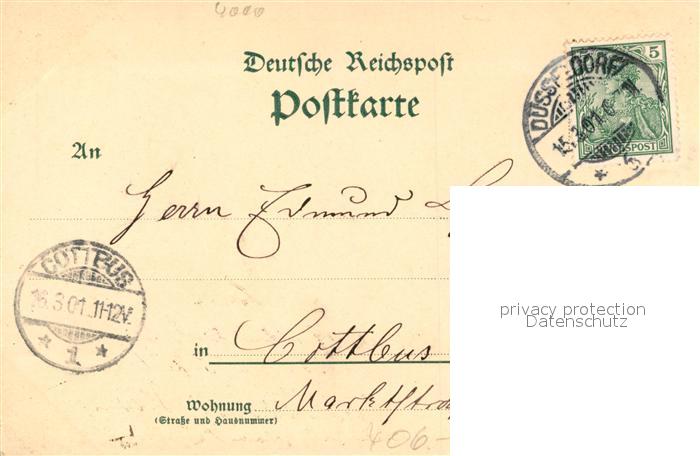 4000
Deutsche Reichspost
Postkarte
5
REICHSPOST
DÜSSELDORF
15.3.01.6
An
Herrn Edmund
COTTBUS
16.3.01.11-12V.
* 1 *
privacy protection
Datenschutz
in Cottbus
Wohnung
(Straße und Hausnummer)
406.-